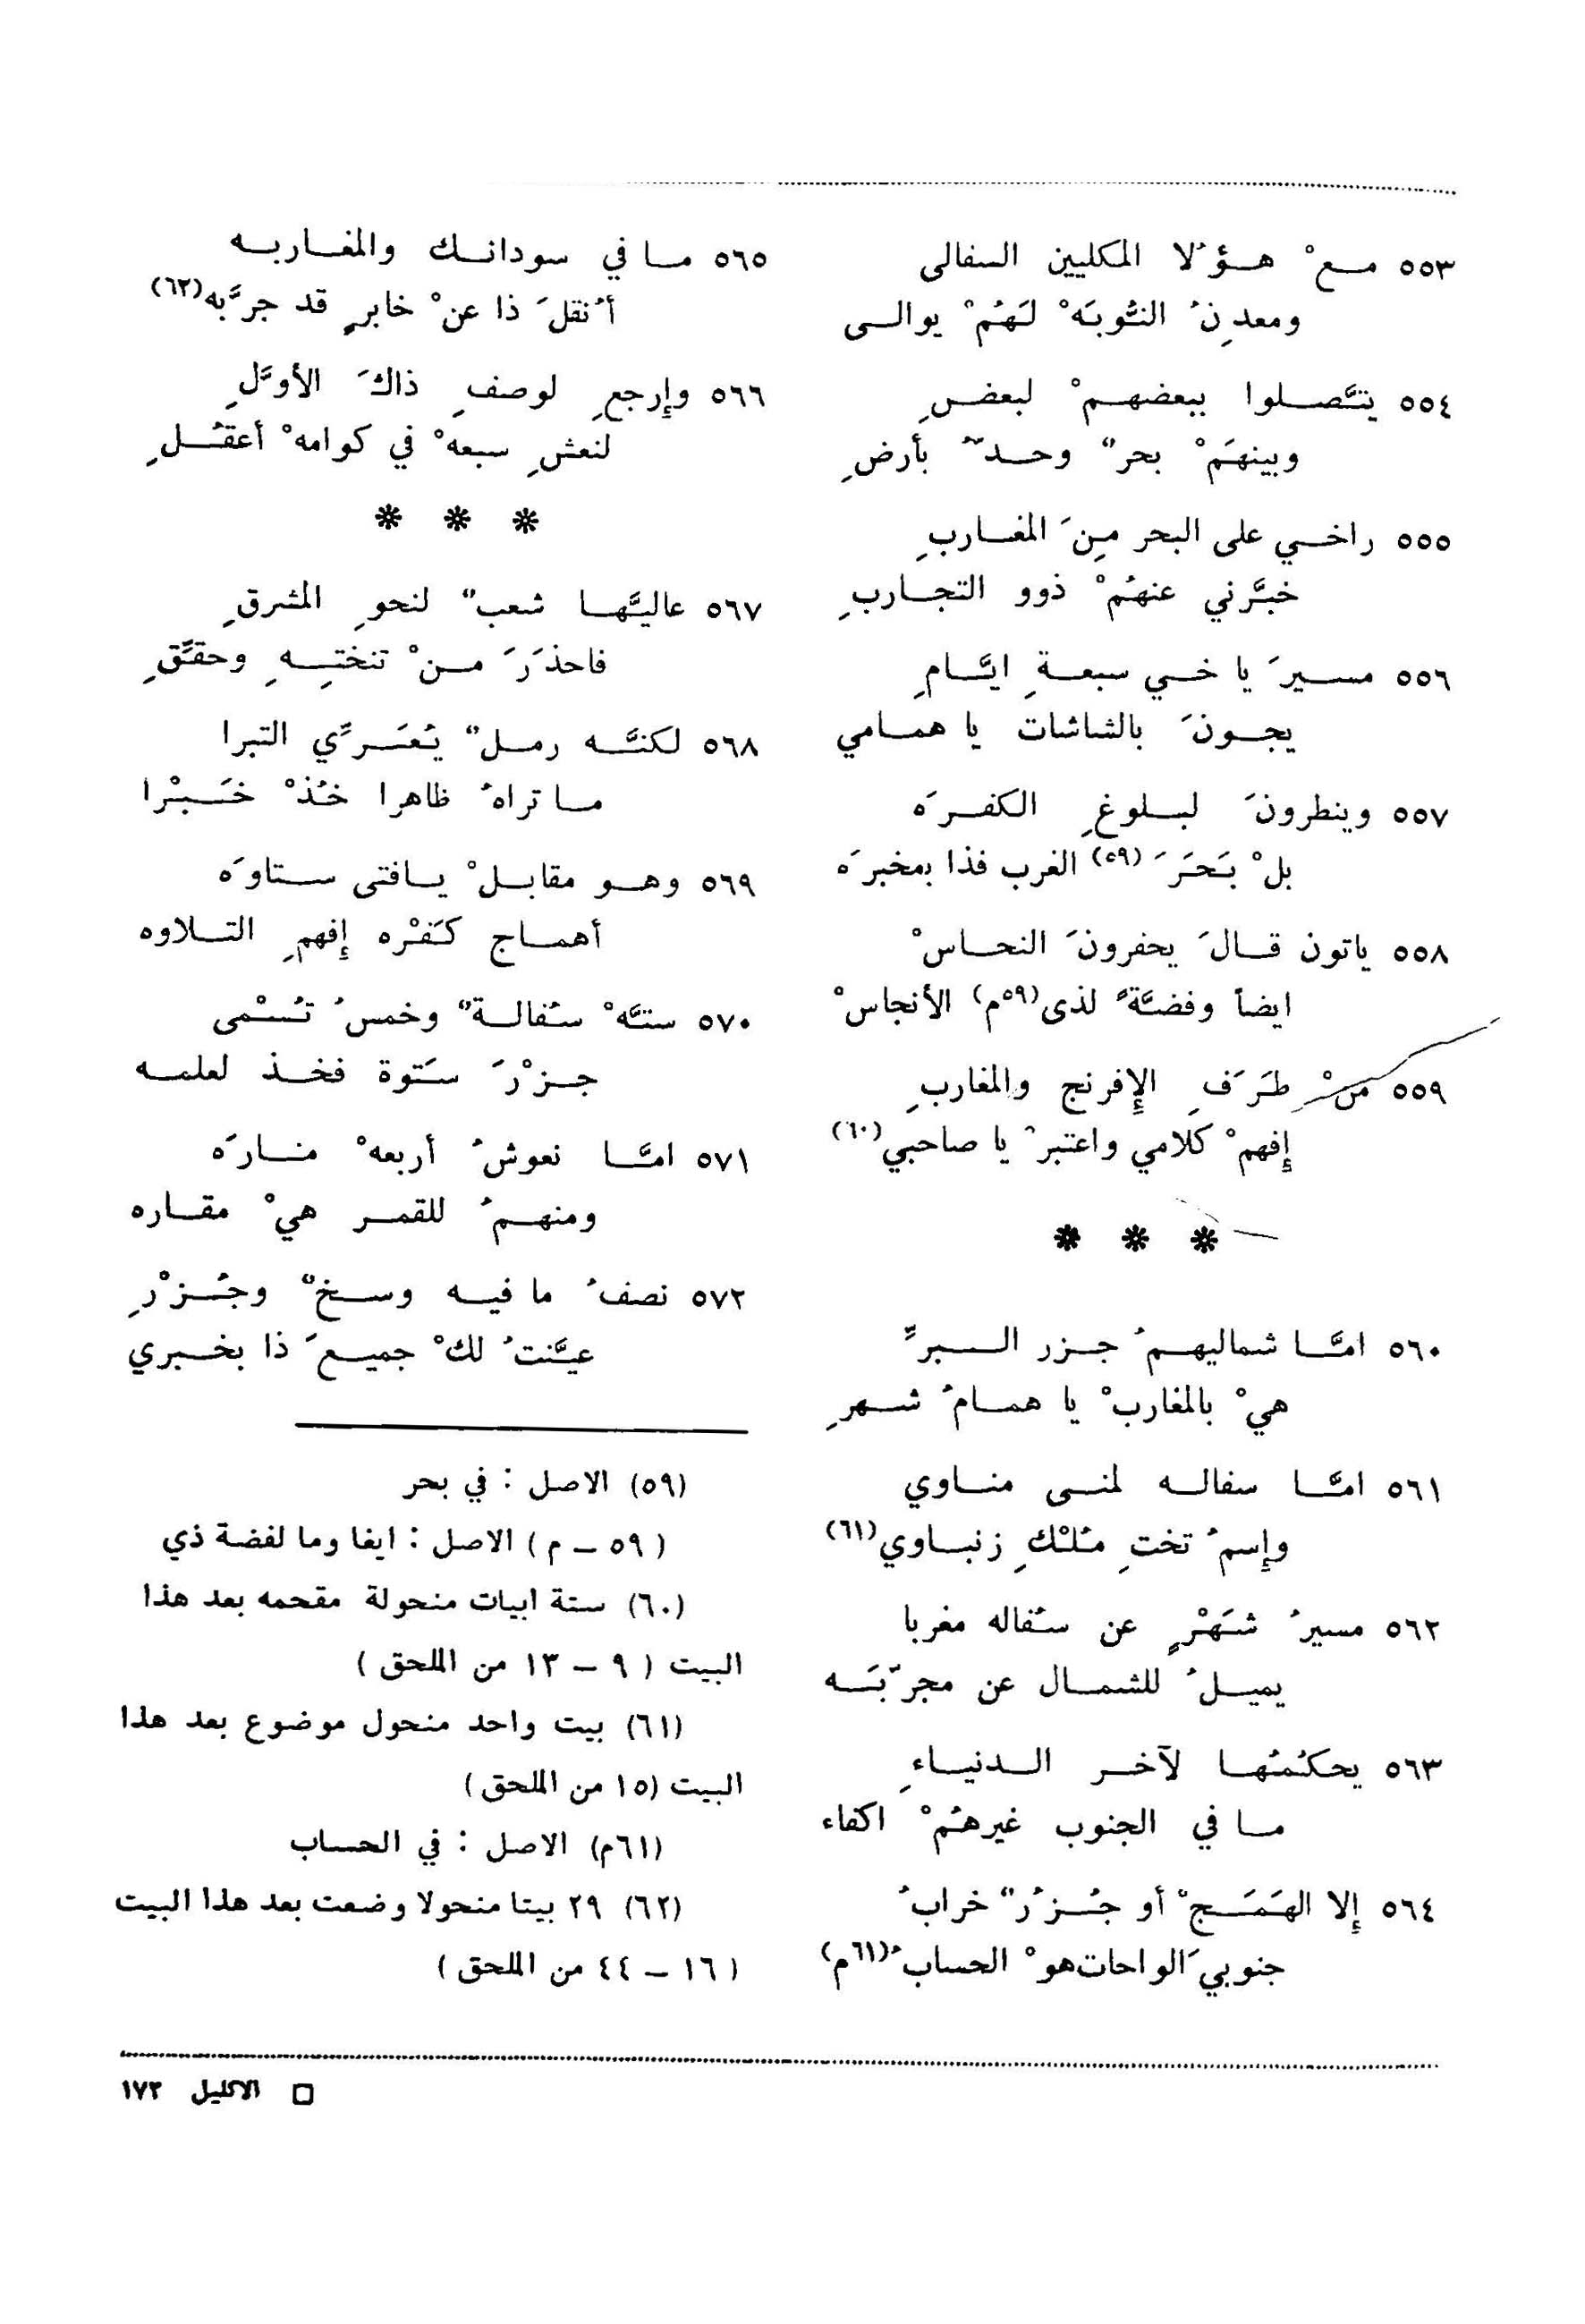 ٥٥٣ مـع ْ هـؤ ُلا المكليين السفالى
ومعدِن ُ النُّوبَه ْ لَهُم ْ يوالـى
٥٥٤ يتَّصـلوا ببعضهـم ْ لبعضِ
وبينهَم ْ بحر ٌ وحـد ّ بأرضِ
٥٥٥ راخـي على البحر مِن َ المغـاربِ
خبَّرني عنهُم ْ ذوو التجـاربِ
٥٥٦ مسـير َ يا خـي سبعـةِ ايَّـامِ
يجـون َ بالشاشات يا همـامي
٥٥٧ وينطرون َ لبـلوغِ الكفـرَه
بل ْ بَحَرَ َ (٥٩) الغرب فذا بمخبرَه
٥٥٨ ياتون قـال َ يحفرون َ النحـاس ْ
ايضاً وفضَّة ً لذى (٥٩م) الأنجاس ْ
٥٥٩ من ْ طَرَفِ الإفرنج والمغاربِ
إفهم ْ كلامي واعتبر ْ يا صاحبي (٦٠)
* * *
٥٦٠ امَّـا شماليهـم ُ جـزر الـبرِّ
هي ْ بالمغارب ْ يا همـام ُ شـهرِ
٥٦١ امَّـا سفالـه لمنـى منـاوي
وإسم ُ تختِ مُلْكِ زنبـاوي (٦١)
٥٦٢ مسير ُ شَهْرٍ عن سُفاله مغربا
يميـل ُ للشمـال عن مجرّبَـه
٥٦٣ يحكُمُهـا لآخـر الـدنيـاءِ
مـا في الجنوب غيرهُم ْ اكفاء
٥٦٤ إلا الهَمَـج ْ أو جُـزُر ٌ خراب ُ
جنوبي َ الواحات هو ْ الحساب ُ (٦١م)
٥٦٥ مـا في سودانـك والمغـاربـه
أُنقل َ ذا عن ْ خابرٍ قد جرَّبه (٦٢)
٥٦٦ وإرجعِ لوصفِ ذاك َ الأوَّلِ
لنعشِ سبعه ْ في كوامه ْ أعقُـلِ
* * *
٥٦٧ عاليَّهـا شعب ٌ لنحوِ المشرقِ
فاحذَرَ َ مـن ْ تنختِـهِ وحقَّقِ
٥٦٨ لكنَّـه رمـل ٌ يُعَـرِّي التبرا
مـا تراه ُ ظاهرا خُذ ْ خَـبْرا
٥٦٩ وهـو مقابـل ْ يـافتى سـتاوَه
أهمـاج كَفْره إفهمِ التـلاوه
٥٧٠ ستَّه ْ سُفالـة ٌ وخمس ُ تُسْمى
جـزْر َ سَتوة فخـذ لعلمـه
٥٧١ امَّـا نعوش ُ أربعه ْ منـارَه
ومنهـم ُ للقمـر هي ْ مقـاره
٥٧٢ نصف ُ ما فيـه وسـخ ٌ وجُـزْرِ
عيَّنت ُ لك ْ جميـع َ ذا بخـبري
(٥٩) الاصل : في بحر
(٥٩ – م) الاصل : ايفا وما لفضة ذي
(٦٠) ستة ابيات منحولة مقحمه بعد هذا
البيت (٩ – ١٣ من الملحق)
(٦١) بيت واحد منحول موضوع بعد هذا
البيت (١٥ من الملحق)
(٦١م) الاصل : في الحساب
(٦٢) ٢٩ بيتا منحولا وضعت بعد هذا البيت
(١٦ – ٤٤ من الملحق)
□ الاكليل ١٧٣